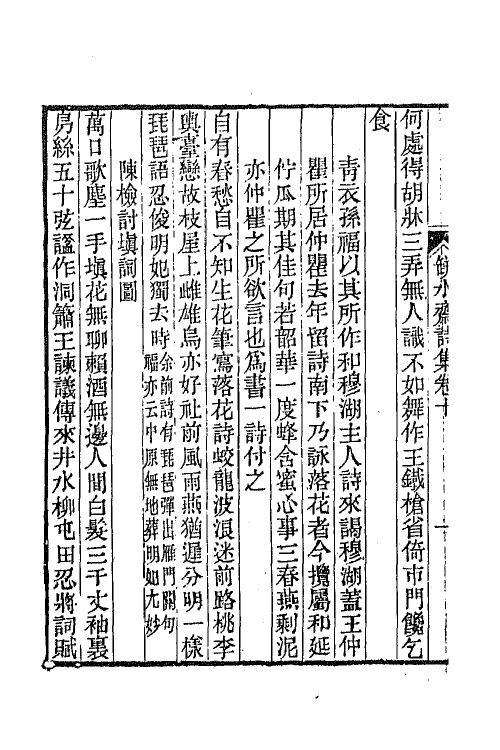 瓶水齋詩集卷十
何處得胡牀三弄無人識不如舞作王鐵槍省倚市門饞乞
食
靑衣孫福以其所作和穆湖主人詩來謁穆湖蓋王仲
瞿所居仲瞿去年留詩南下乃詠落花者今攬屬和延
佇瓜期其佳句若韶華一度蜂含蜜心事三春燕剩泥
亦仲瞿之所欲言也爲書一詩付之
自有春愁自不知生花筆寫落花詩蛟龍波浪迷前路桃李
輿臺戀故枝屋上雌雄烏亦好社前風雨燕猶遲分明一樣
琵琶語忍俊明妃獨去時余前詩有琵琶彈出雁門關句
福亦云中原無地葬明妃尤妙
陳檢討塡詞圖
萬口歌塵一手塡花無聊賴酒無邊人間白髮三千丈袖裏
房絲五十弦謚作洞簫王諫議傳來井水柳屯田忍將詞賦